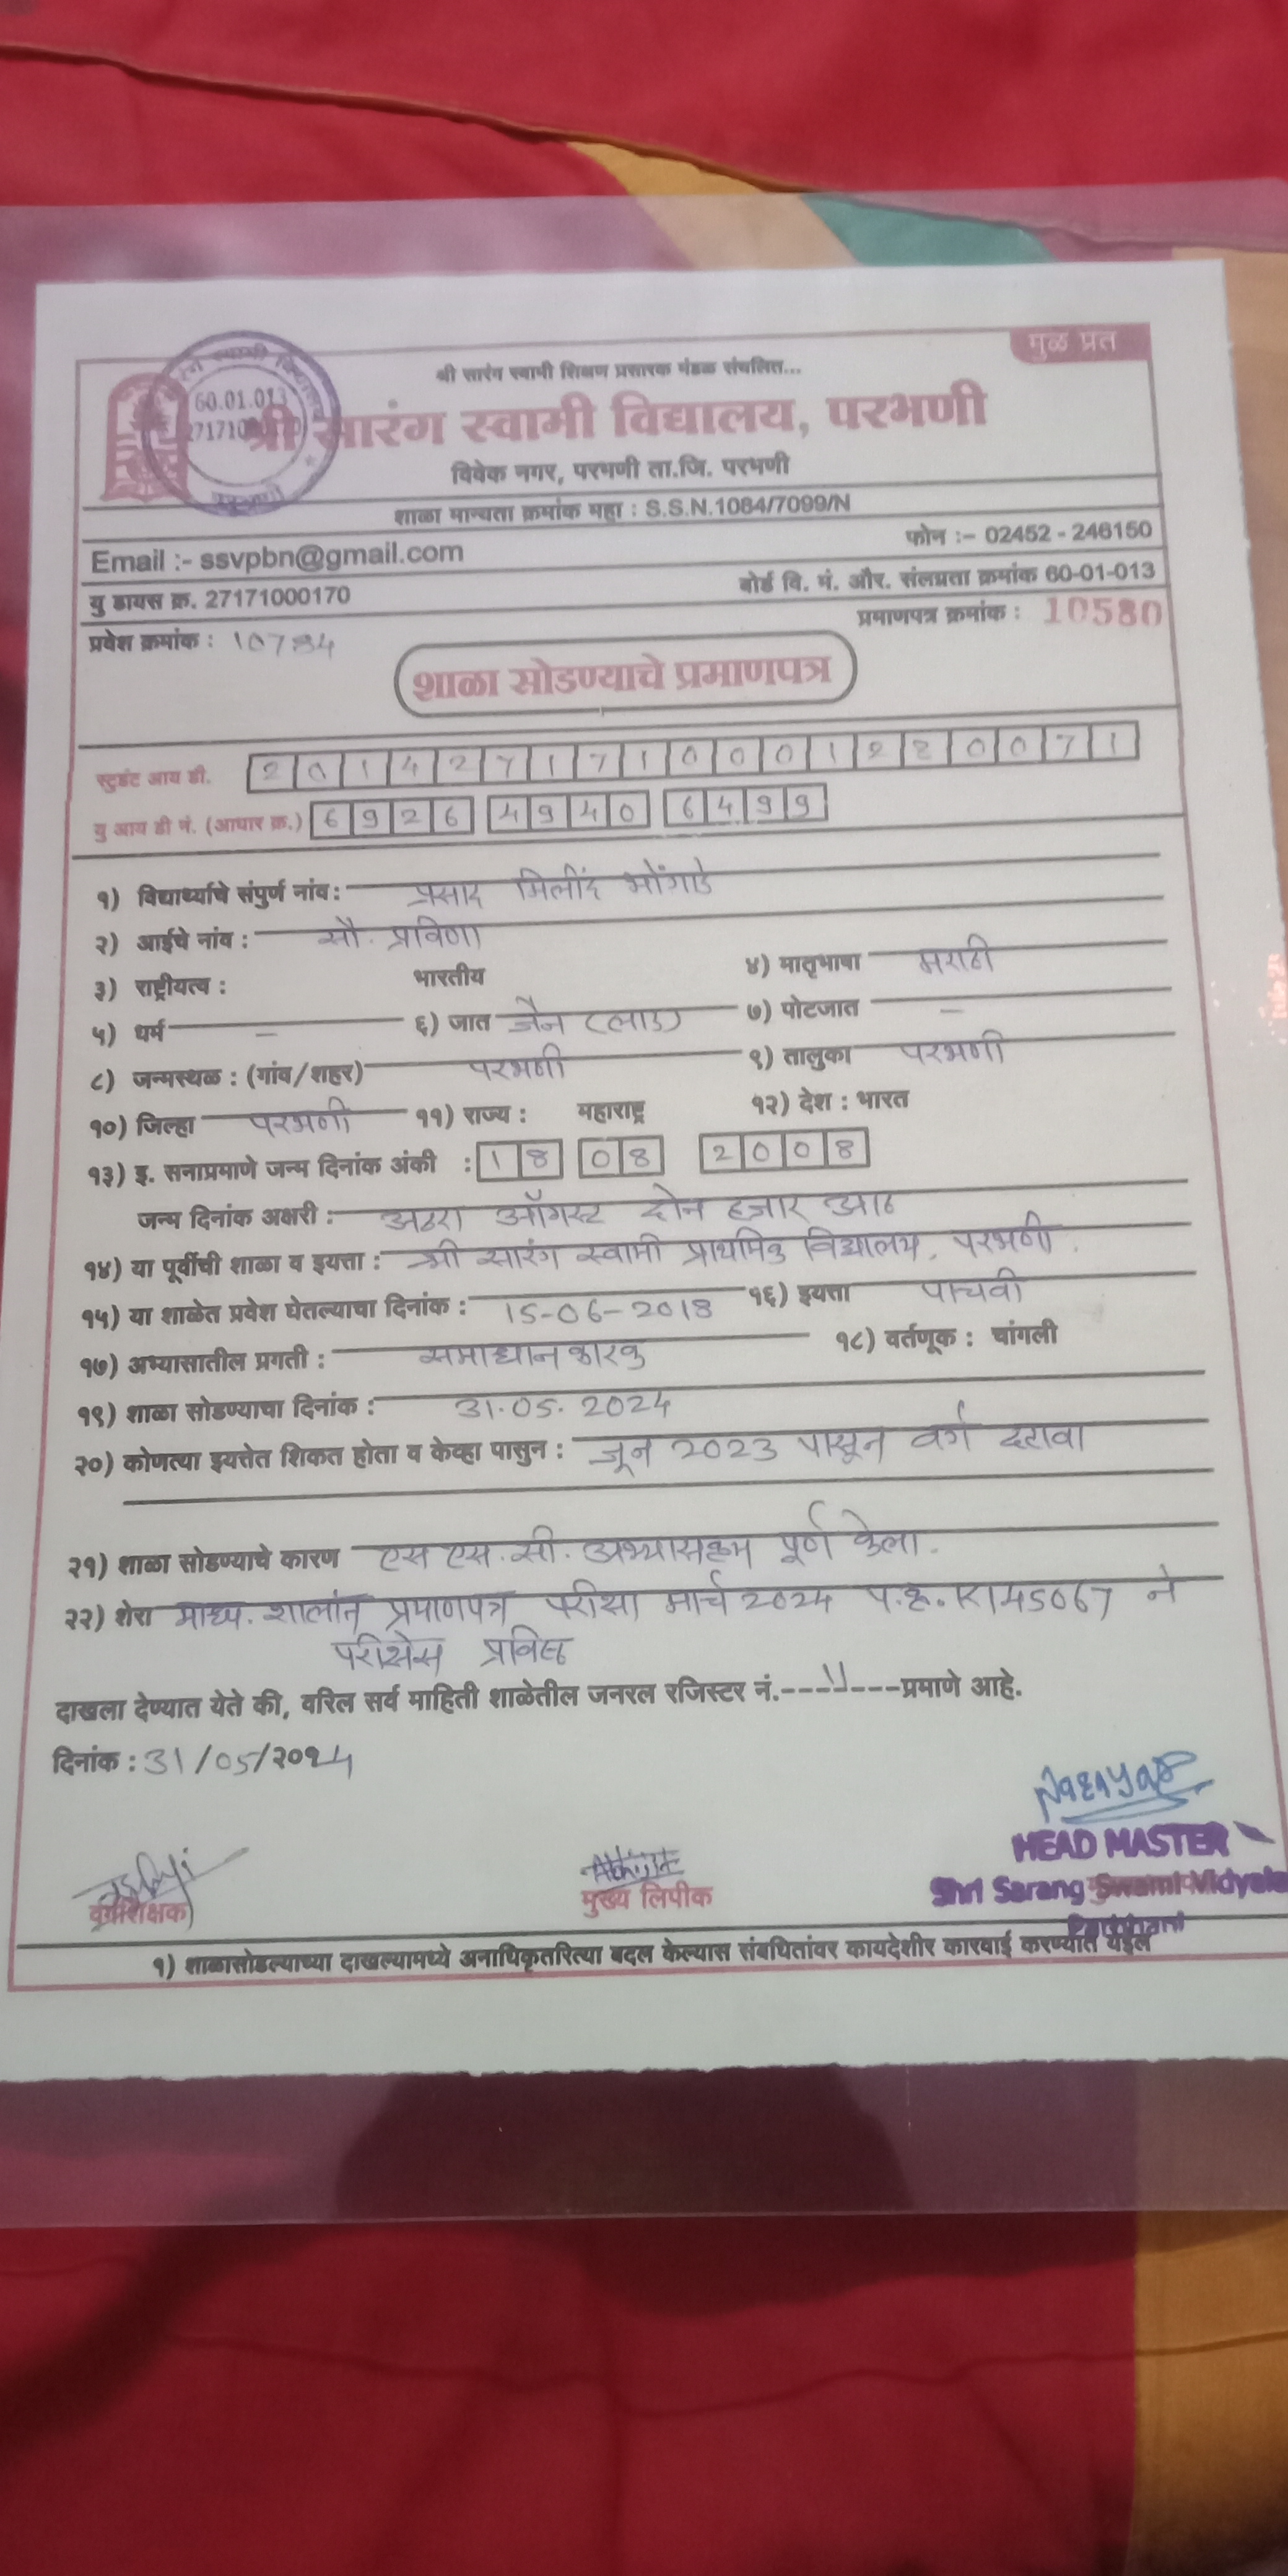 मुळ प्रत
श्री सारंग स्वामी शिक्षण प्रसारक मंडळ संचलित...
श्री सारंग स्वामी विद्यालय, परभणी
60.01.013
विवेक नगर, परभणी ता.जि. परभणी
शाळा मान्यता क्रमांक महा : S.S.N.1084/7099/N
Email :- ssvpbn@gmail.com फोन :- 02452 - 246150
यु डायस क्र. 27171000170 बोर्ड वि. मं. और. संलग्नता क्रमांक 60-01-013
प्रवेश क्रमांक : 10784 प्रमाणपत्र क्रमांक : 10580
शाळा सोडण्याचे प्रमाणपत्र
स्टुडंट आय डी. 2014271710001220071
यु आय डी नं. (आधार क्र.) 6926 4940 6499
१) विद्यार्थ्याचे संपुर्ण नांव : प्रसाद मिलींद भोंगाडे
२) आईचे नांव : सौ. प्रविणा
३) राष्ट्रीयत्व : भारतीय ४) मातृभाषा मराठी
५) धर्म — ६) जात जैन (लाड) ७) पोटजात —
८) जन्मस्थळ : (गांव/शहर) परभणी ९) तालुका परभणी
१०) जिल्हा परभणी ११) राज्य : महाराष्ट्र १२) देश : भारत
१३) इ. सनाप्रमाणे जन्म दिनांक अंकी : 18 08 2008
जन्म दिनांक अक्षरी : अठरा ऑगस्ट दोन हजार आठ
१४) या पूर्वीची शाळा व इयत्ता : श्री सारंग स्वामी प्राथमिक विद्यालय, परभणी.
१५) या शाळेत प्रवेश घेतल्याचा दिनांक : 15-06-2018 १६) इयत्ता पाचवी
१७) अभ्यासातील प्रगती : समाधानकारक १८) वर्तणूक : चांगली
१९) शाळा सोडण्याचा दिनांक : 31.05.2024
२०) कोणत्या इयत्तेत शिकत होता व केव्हा पासुन : जून 2023 पासून वर्ग दहावा
२१) शाळा सोडण्याचे कारण एस एस.सी. अभ्यासक्रम पूर्ण केला.
२२) शेरा माध्य. शालांत प्रमाणपत्र परीक्षा मार्च 2024 प.क्र. K145067 ने
परीक्षेस प्रविष्ठ
दाखला देण्यात येते की, वरिल सर्व माहिती शाळेतील जनरल रजिस्टर नं.---11---प्रमाणे आहे.
दिनांक : 31/05/२०२4
HEAD MASTER
वर्गशिक्षक मुख्य लिपीक Shri Sarang Swami Vidyala
Parbhani
१) शाळासोडल्याच्या दाखल्यामध्ये अनाधिकृतरित्या बदल केल्यास संबधितांवर कायदेशीर कारवाई करण्यात येईल